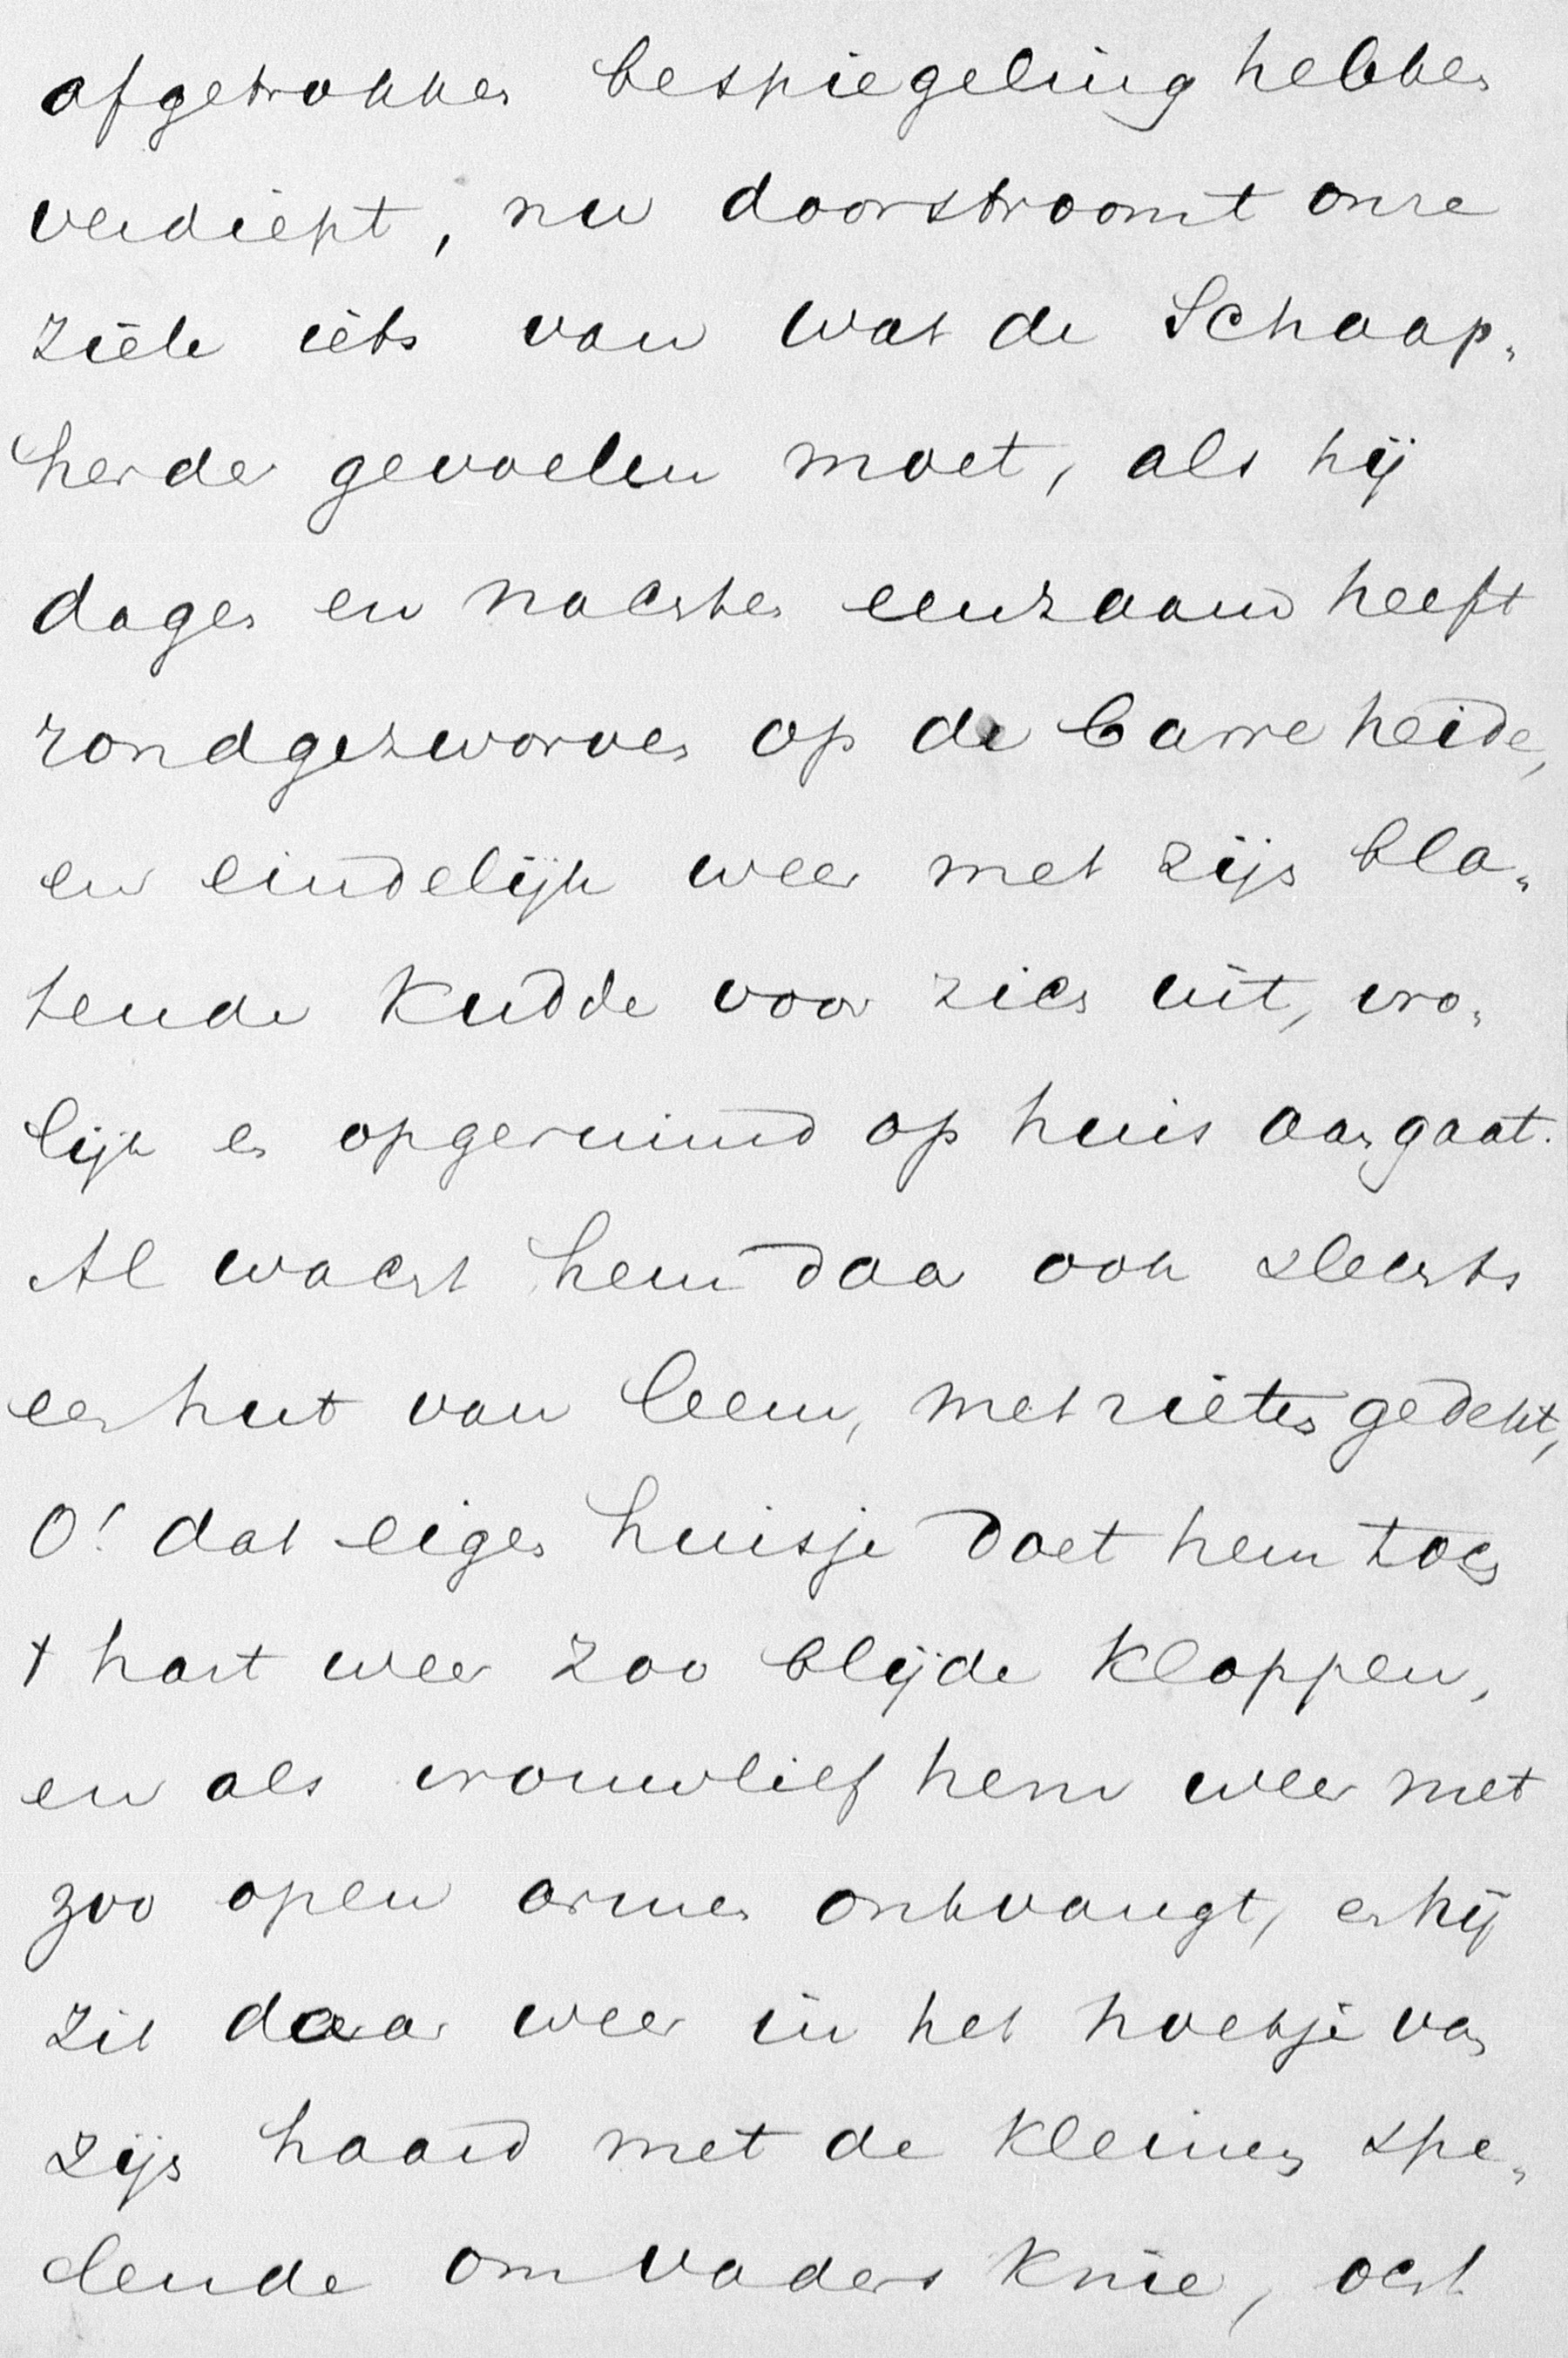 afgetrokken bespiegeling hebben
verdiept, nu doorstroomt onze
ziele iets van wat de Schaap„
herder gevoelen moet, als hij
dagen en nachten eenzaam heeft
rondgezworven op de barre heide,
en eindelijk weer met zijn bla„
tende kudde voor zich uit, vro„
lijk en opgeruimd op huis aangaat.
Al wacht hem daar ook slechts
een hut van leem, met rieten gedekt,
O! dat eigen huisje doet hem toch
t hart weer zoo blijde kloppen,
en als vrouwlief hem weer met
zoo open armen ontvangt, en hij
zit daar weer in het hoekje van
zijn haard met de kleinen spe„
lende om vaders knie, ach